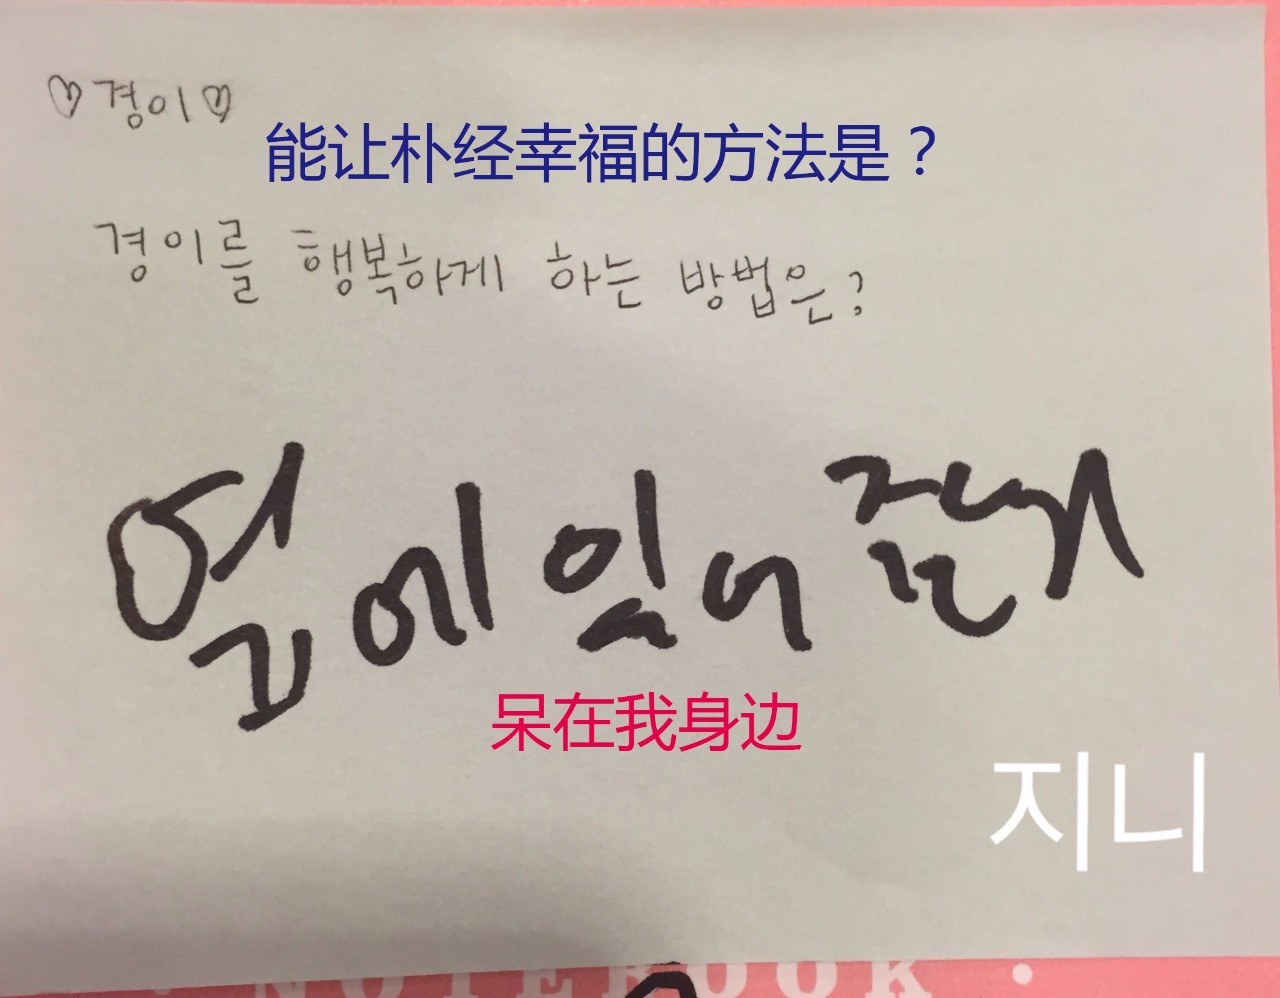 ♡경이♡
能让朴经幸福的方法是？
경이를 행복하게 하는 방법은?
옆에 있어 준다
呆在我身边
지니
NOTEBOOK